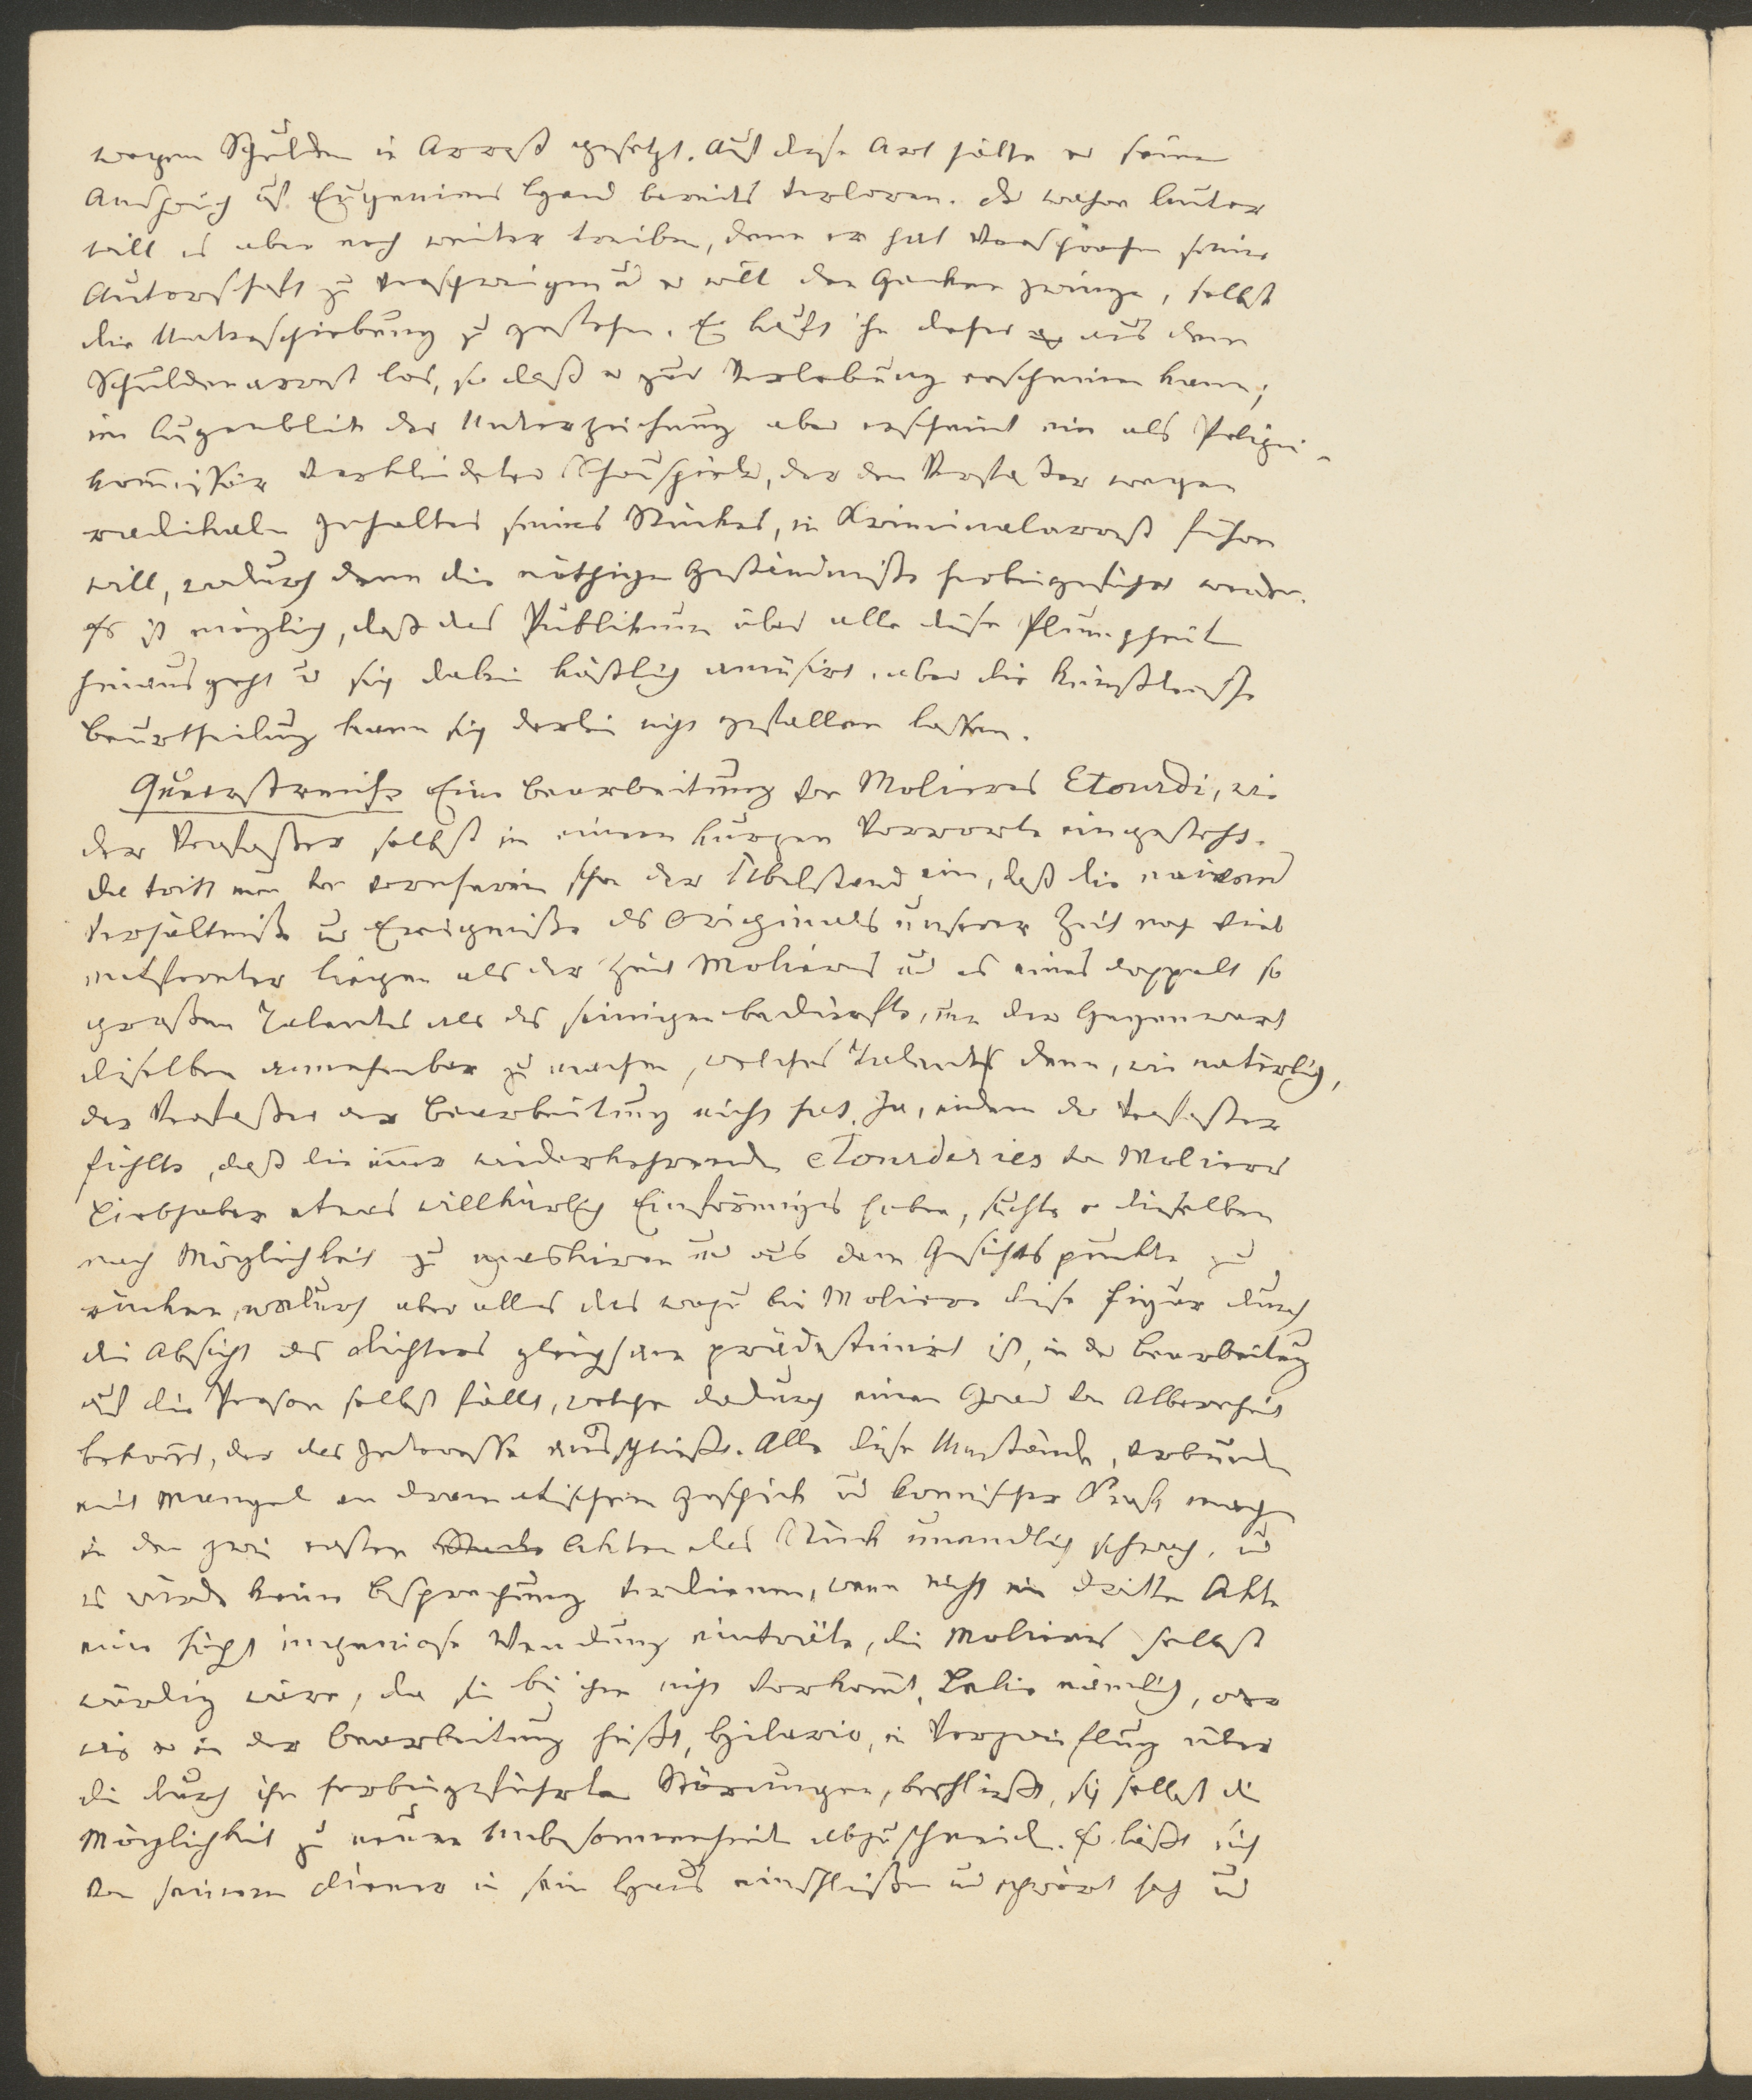 wegen Schulden in Arrest gesetzt. Auf diese Art hätte er seinen
Anspruch auf Eugeniens Hand bereits verloren. Der wahre Autor
will es aber noch weiter treiben, denn er hat versprochen seine
Autorschaft zu verschweigen und er will den Gecken zwingen, selbst
die Unterschiebung zu gestehen. Er kauft ihn daher aus dem
Schuldenarrest los, so daß er zur Verlobung erscheinen kann;
im Augenblick der Unterzeichnung aber erscheint ein als Polizei-
kommissär verkleideter Schauspieler, der den Verfasser wegen
radikalen Inhaltes seines Stückes, in Kriminalarrest führen
will, wodurch denn die nöthigen Geständniße herbeigeführt werden.
Es ist möglich, daß das Publikum über alle diese Plumpheiten
hinausgeht und sich dabei köstlich amüsirt, aber die künstlerische
Beurtheilung kann sich derlei nicht gefallen lassen.
Querstreiche Eine Bearbeitung von Molieres Etourdi, wie
der Verfasser selbst in einem kurzen Vorworte eingesteht.
Da tritt nun von vornherein schon der Übelstand ein, daß die naiven
Verhältniße und Ereigniße des Originals unserer Zeit noch viel
entfernter liegen als der Zeit Molieres und es eines doppelt so
großen Talentes als des seinigen bedürfte, um der Gegenwart
dieselben annehmbar zu machen, welches Talent denn, wie natürlich,
der Verfasser der Bearbeitung nicht hat. Ja, indem der Verfasser
fühlte, daß die immer wiederkehrenden etourderies von Molieres
Liebhaber etwas willkürlich Einförmiges haben, suchte er dieselben
nach Möglichkeit zu maskiren und aus dem Gesichtspunkte zu
rücken, wodurch aber alles das wozu bei Moliere diese Figur durch
die Absicht des Dichters gleichsam prädestinirt ist, in der Bearbeitung
auf die Person selbst fällt, welche dadurch einen Grad von Albernheit
bekommt, der das Interesse ausschließt. Alle diese Umstände, verbunden
mit Mangel an dramatischem Geschick und komischer Kraft machen
in den zwei ersten Akten das Stück unendlich schwach, und
es würde keine Besprechung verdienen, wenn nicht im dritten Akte
eine höchst ingeniose Wendung einträte, die Molieres selbst
würdig wäre, da sie bei ihm nicht vorkommt. Lelio nämlich, oder
wie er in der Bearbeitung heißt, Hilario, in Verzweiflung über
die durch ihn herbeigeführten Störungen, beschließt, sich selbst die
Möglichkeit zu neuen Unbesonnenheiten abzuschneiden. Er läßt sich
von seinem Diener in sein Haus einschließen und schwört hoch und